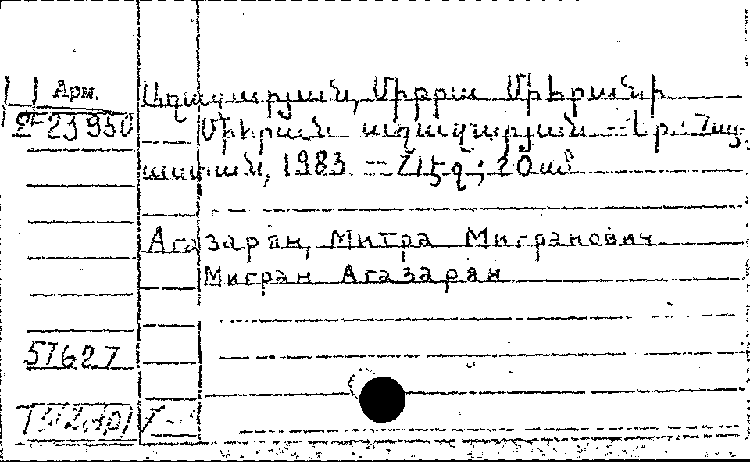 Арм.
Աղազարյան, Միթրա Միհրանի
2-23950
Միհրան աղազարյան. – Եր.: Հայ
աստան, 1983 – 215 գ; 20 սմ
Агазарян, Митра Мигранович
Мигран Агазарян
57627